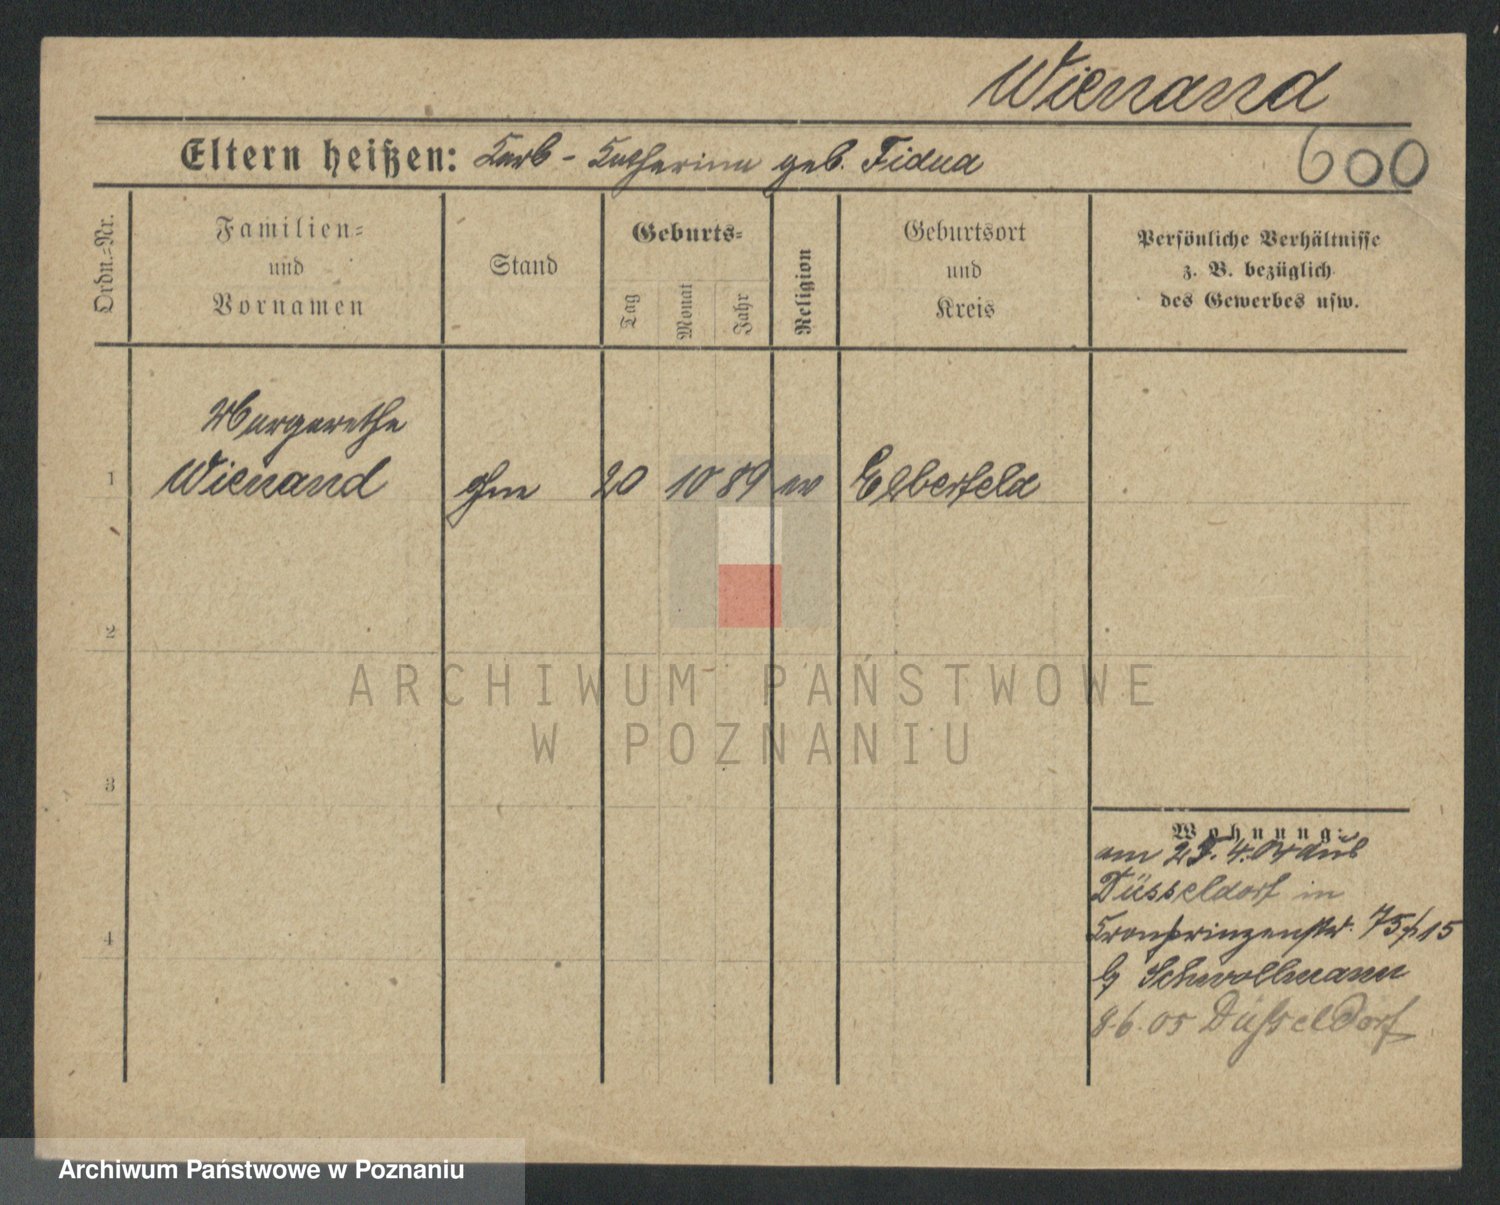 Wienand
Eltern heißen: Karl - Katharina geb. Fidua
600
Ordn.=Nr.
Familien=
und
Vornamen
Stand
Geburts=
Tag
Monat
Jahr
Religion
Geburtsort
und
Kreis
Persönliche Verhältnisse
z. B. bezüglich
des Gewerbes usw.
Margarethe
1 Wienand ohne 20 10 89 ev Elberfeld
2
3
4
Wohnung:
am 25. 4. 04 aus
Düsseldorf in
Kronprinzenstr. 75/15
b/ Schwollmann
8.6.05 Düsseldorf
ARCHIWUM PAŃSTWOWE
W POZNANIU
Archiwum Państwowe w Poznaniu